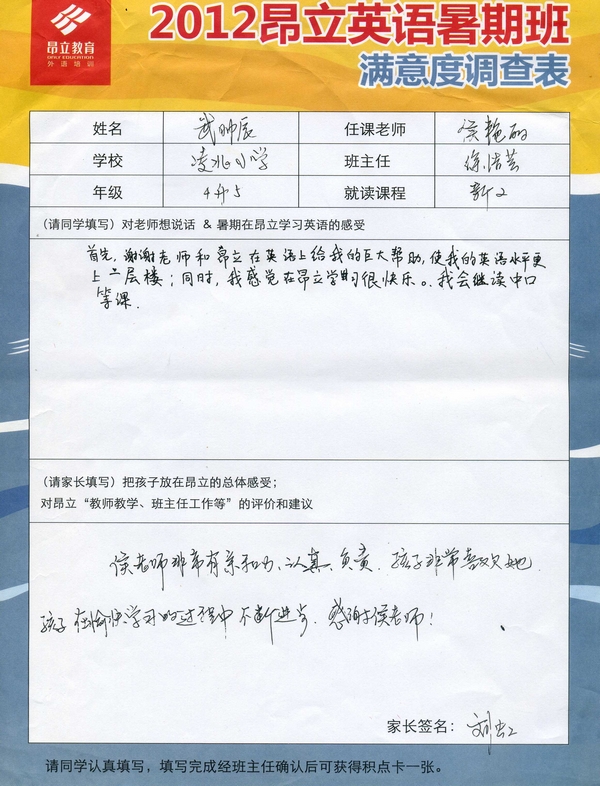 昂立教育
ONLY EDUCATION
外语培训
2012昂立英语暑期班
满意度调查表
姓名 武帅辰 任课老师 侯艳丽
学校 凌兆小学 班主任 徐洁芸
年级 4升5 就读课程 新2
(请同学填写) 对老师想说话 & 暑期在昂立学习英语的感受
首先,谢谢老师和昂立在英语上给我的巨大帮助,使我的英语水平更
上一层楼;同时,我感觉在昂立学习很快乐。我会继续读中口
等课.
(请家长填写) 把孩子放在昂立的总体感受;
对昂立“教师教学、班主任工作等”的评价和建议
侯老师非常有亲和力、认真、负责.孩子非常喜欢她.
孩子在愉快学习的过程中不断进步.感谢侯老师!
家长签名: 刘
请同学认真填写,填写完成经班主任确认后可获得积点卡一张。